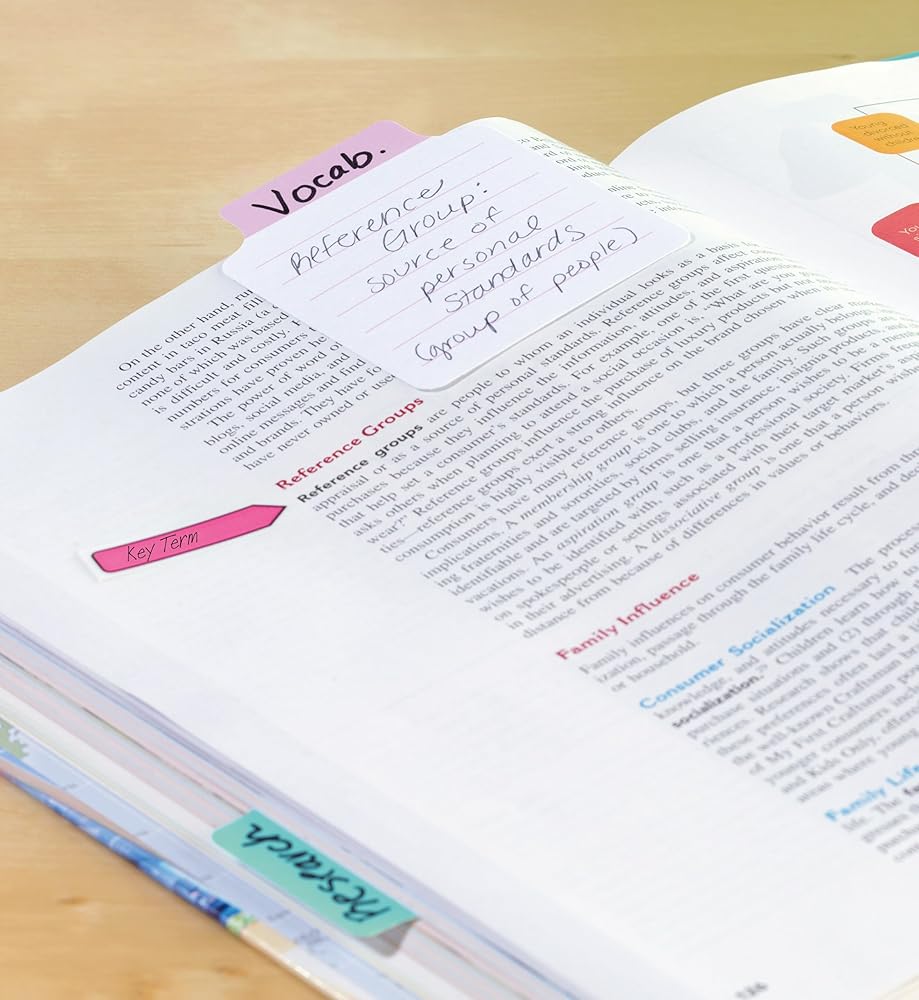 Vocab.
Reference
Group:
source of
personal
Standards
(group of people)
Young
divorced
without
On the other hand,
content in taco meat
candy bars in Russia (a
none of which was based
is difficult and costly.
numbers for consumers
strations have proven
The power of word
blogs, social media, and
online messages and
and brands. They have
have never owned or
Reference Groups
Reference groups are people to whom an individual looks as a basis
appraisal or as a source of personal standards. Reference groups affect
purchases because they influence the information, attitudes, and aspiration
that help set a consumer's standards. For example, one of the first
asks others when planning to attend a social occasion is, "What are you
wear?" Reference groups influence the purchase of luxury products but
ties—reference groups exert a strong influence on the brand chosen when
consumption is highly visible to others.
Consumers have many reference groups, but three groups have clear
implications. A membership group is one to which a person actually
ing fraternities and sororities, social clubs, and the family. Such groups are
identifiable and are targeted by firms selling insurance, insignia products, and
vacations. An aspiration group is one that a person wishes to be a
wishes to be identified with, such as a professional society. Firms
on spokespeople or settings associated with their target market's
in their advertising. A dissociative group is one that a person wishes
distance from because of differences in values or behaviors.
Key Term
Family Influence
Family influences on consumer behavior result from the
ization, passage through the family life cycle, and
or household.
Consumer Socialization The process
knowledge, and attitudes necessary to
socialization. Children learn how to
purchase situations and (2) through
riences. Research shows that
these preferences often last a
the well-known Craftsman
of My First Craftsman
younger consumers
and Kids Only,
areas where
Family Life
life. The
Research